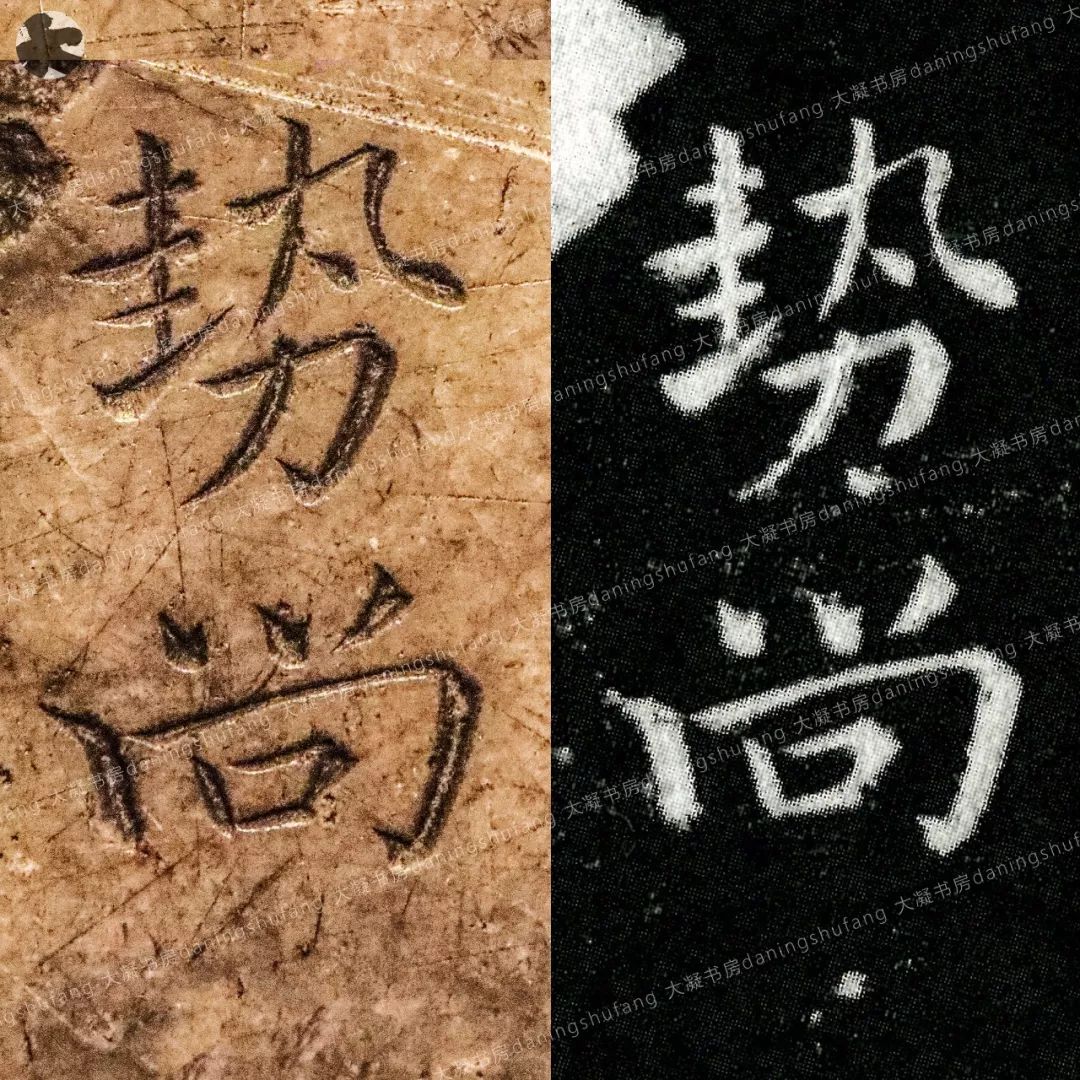 勢尚
勢尚
大凝书房daningshufang